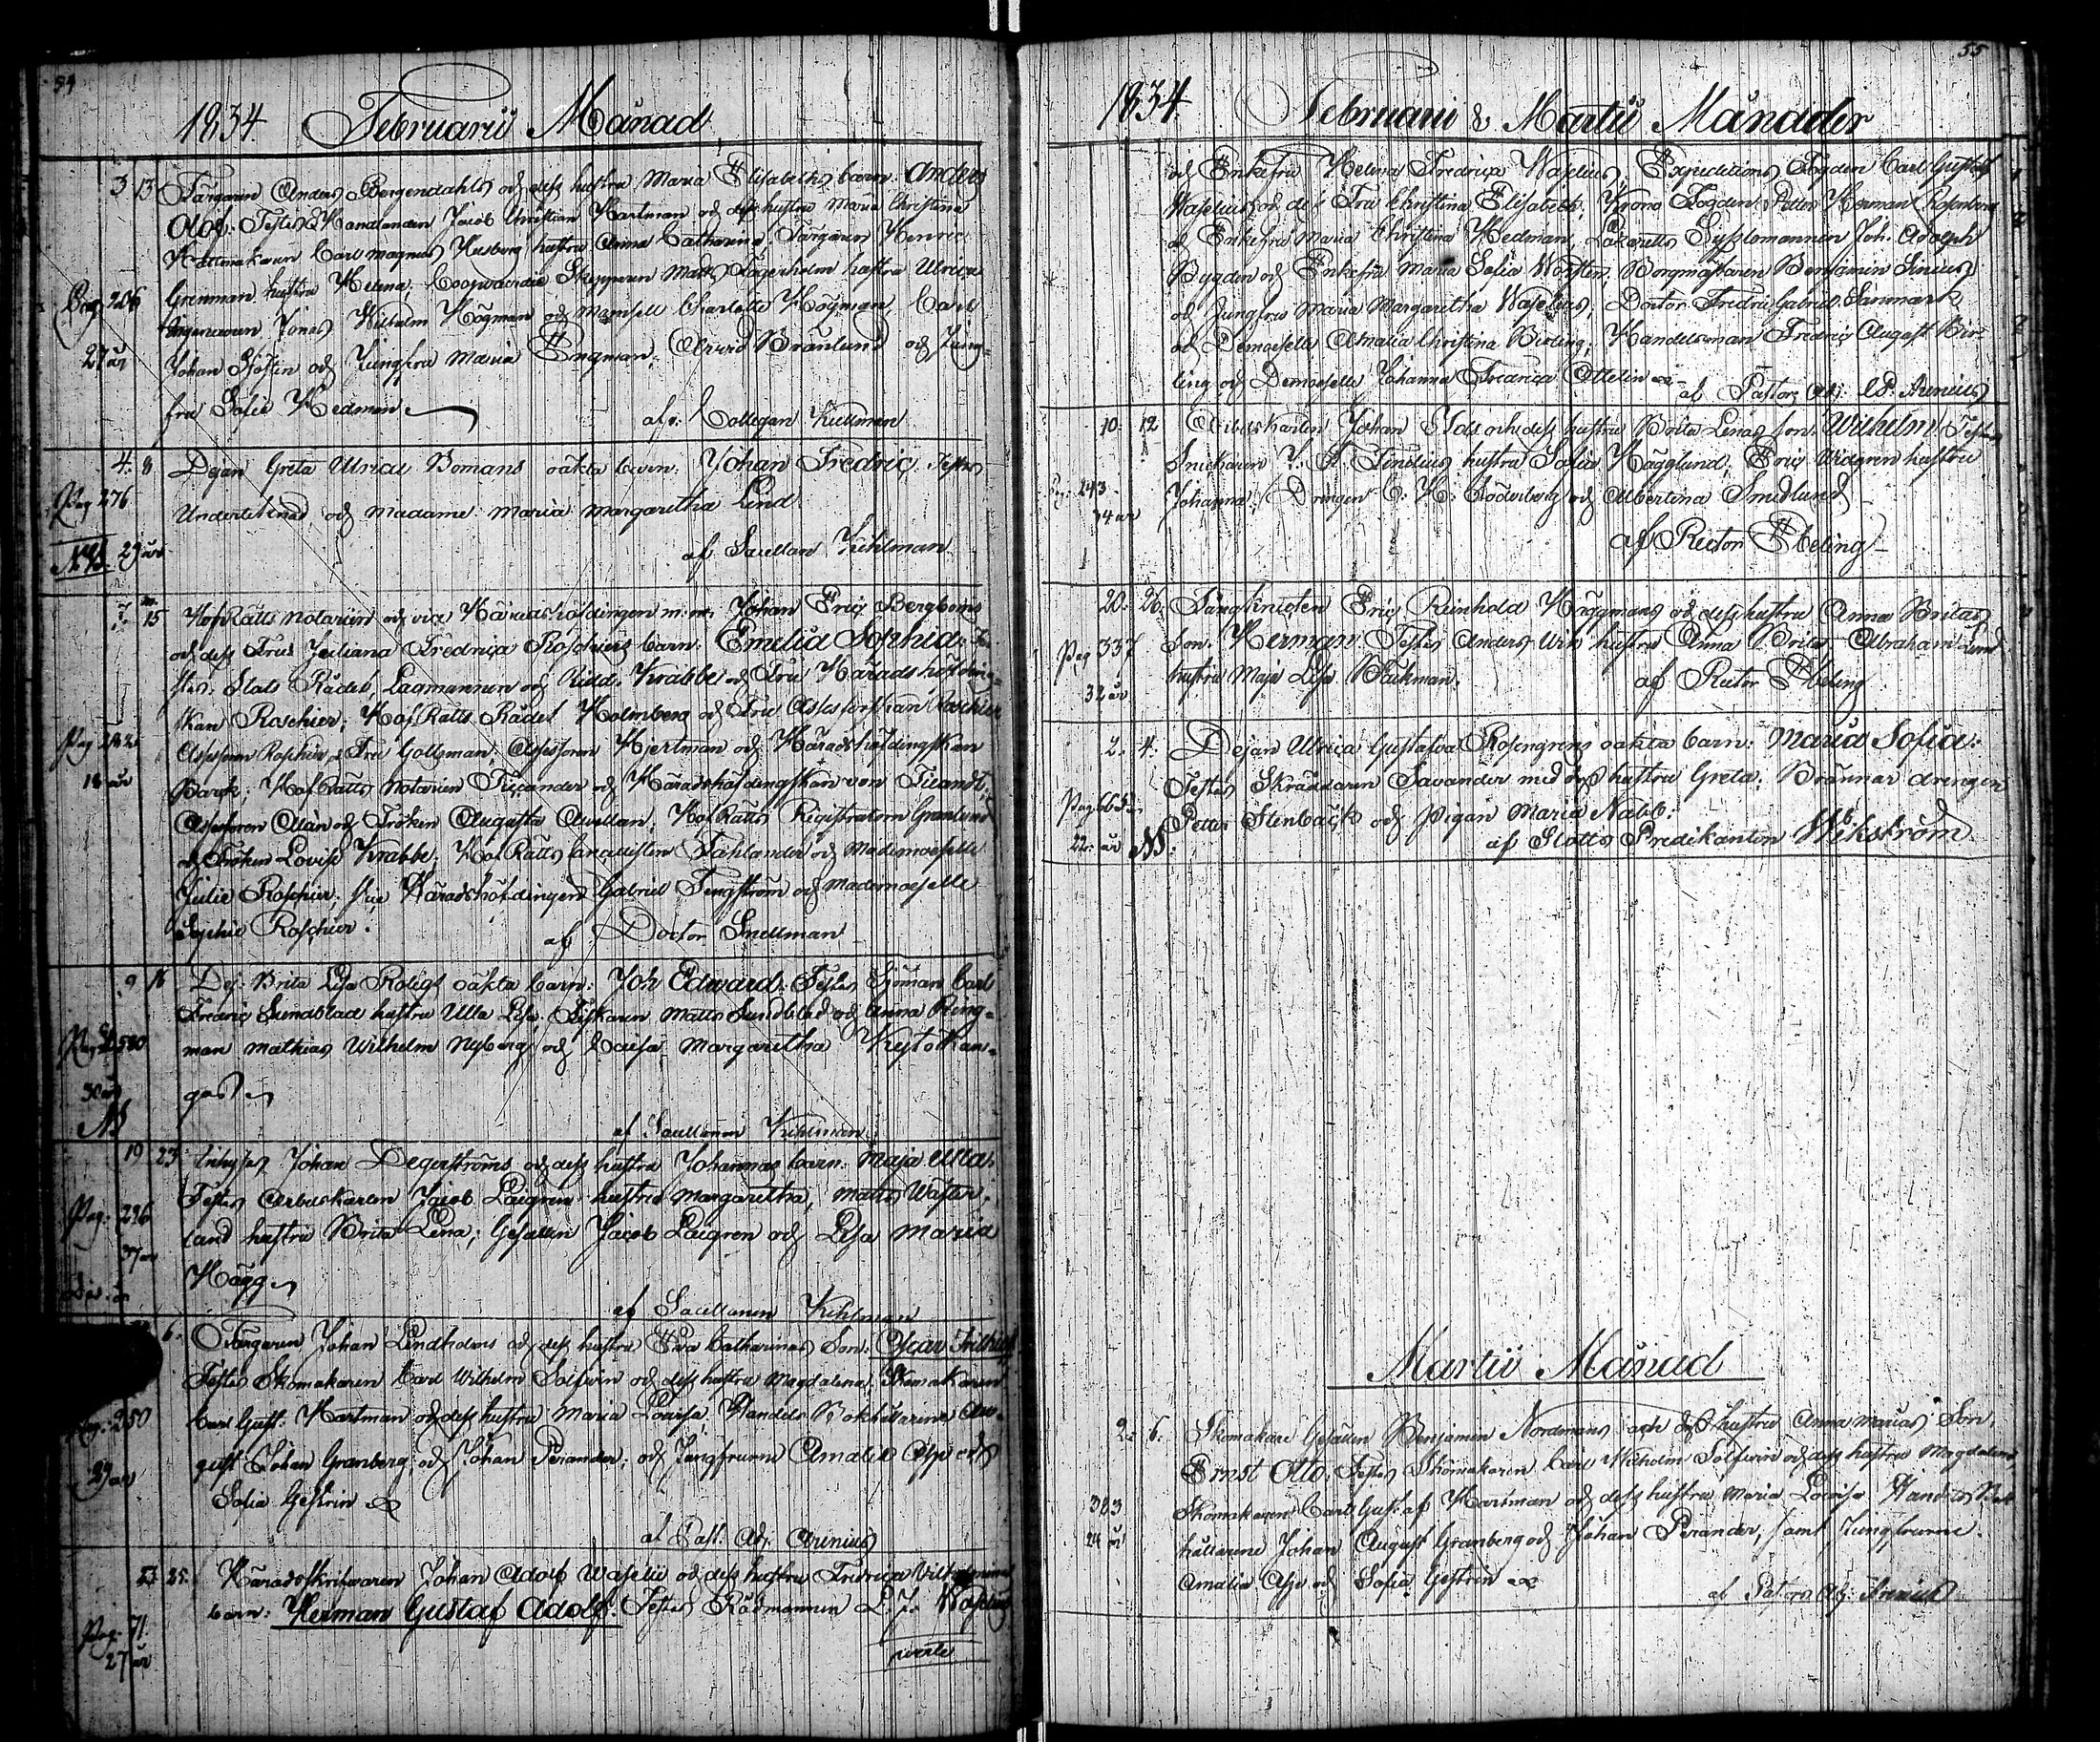 54
1834. Februarii Månad
3 13 Färgaren Anders Bergendahls och dess hustru Maria Elisabeths barn: Anders
Olof. Testes Handlanden Jacob Christian Hartman och dess hustru Maria Christina
Hattmakaren Carl Magnus hustru Anna Catharina, Färgaren Henric
Grenman hustru Helena, Coopvaerdie Skepparen Matts Fågerholm hustru Ulrica
Pag 206
Jonas Wilhelm Högman och Mamsell Charlotte Högman, Carl
27 år
Johan Sjösten och Jungfru Maria Engman, Arvid Brånlund och Jung-
fru Sofie Hedman
af v. Collegan Kiellman
4. 8 Dejan Greta Ulrica Bomans oäkta barn: Johan Fredric, Testes
Pag 276
Undertecknad och Madame Maria Margaretha Lind
NB. 29 år
af Sacellan Kihlman
7. 15 HofRätts Notarien och vice Häradshöfdingen m:m: Johan Eric Bergboms
och dess Fru Juliana Fredrica Roschiers barn: Emelia Sophia. Te-
stes: Stats Rådet, Lagmannen och Ridd. Krabbe och Fru Häradshöfding-
skan Roschier; HofRätts Rådet Holmberg och Fru Assessorskan Roschier
Assessoren Roschier, Fru Gottsman, Assessoren Hjertman och Häradshöfdingskan
Pag 282
18 år
Barck; HofRätts Notarien Ticcander och Häradshöfdingskan von
Assessoren och Fröken Augusta Avellan; HofRätts Registratorn Granlund
och Fröken Lovise Krabbe; HofRätts Cancellisten Fahlander och Mademoiselle
Julie Roschier; Vice Häradshöfdingen Gabriel Tengström och Mademoiselle
Sophie Roschier.
af Doctor Snellman
9 16 Dej: Brita Lisa Roligs oäkta barn: Joh Edward. Testes Sjöman Carl
Fredric Sundblad hustru Ulla Lisa, Fiskaren Matts Sundblad och Anna Ring-
Pag 580
man Mathias Wilhelm Nyberg och Caisa Margaretha
30 år
gas
NB
af Sacellanen Kihlman
19 23 Inhyses Johan Degerströms och dess hustru Johannas barn: Maja Ulla.
Testes Arbetskarlen Jacob Laigren hustru Margaretha, Matts Wäster-
Pag: 296
land hustru Brita Lena, Gesällen Jacob Laigren och Lisa Maria
37 år
Hägg
af Sacellanen Kihlman
6. Färgaren Johan Lindholms och dess hustru Eva Catharinas Son: Oscar Fredric
Testes Skomakaren Carl Wilhelm Solfwin och dess hustru Magdalena, Skomakaren
Pag: 250
Carl Gust: Hartman och dess hustru Maria Lovisa, Handels Bokhållarene Au-
gust Johan Granberg, och Johan Perander, och Jungfrurne Amalia Asp och
29 år
Sofia Gestrin
af Past. Adj. Arenius
25. Häradsskrifvaren Johan Adolf Waselii och dess hustru Fredrica Vilhelminas
barn: Herman Gustaf Adolf. Testes Rådmannen L. J. Waselius
Pag 71
27 år
verte
55
1834. Februarii & Martii Månader
och Enkefru Helena Fredrica Waselius, Expeditions Fogden Carl Gustaf
Waselius och dess Fru Christina Elisabeth, Krono Fogden Petter Herman Rosenberg
och Enkefru Maria Christina Hedman, Lazaretts Sysslomannen Joh. Adolph
Bygden och Enkefru Maria Sofia Worster, Borgmästaren Benjamin
och Jungfru Maria Margaretha Waselius, Doctor Fredric Gabriel Sanmark
och Demoiselle Amalia Christina Birling, Handelsman Fredric August Bir-
ling och Demoiselle Johanna Fredrica Ottelin
af Pastors Adj: Arenius
10. 12 Arbetskarlen Johan och dess hustru Brita Lenas son: Wilhelm. Testes
Snickaren J. A. hustru Sofia Hägglund; Eric Widgren hustru
243
34 år
Johanna, Drengen C: H: Söderberg och Albertina Smedlund
af Rector Ebeling
20. 26. Fångknecten Eric Reinhold Häggmans och dess hustru Anna Britas
son. Herman. Testes Anders Wik hustru Anna Brita Abraham Lind
Pag 337
hustru Maja Lisa Backman.
32 år
af Rector Ebeling
2. 4. Dejan Ulrica Gustafva Rosengrens oäkta barn: Maria Sofia:
Testes Skräddaren Savander med dess hustru Greta; Brännar drengen
Pag 665
Petter Stenbäck och Pigan Maria Nabb:
22 år NB.
af Slotts Predikanten Wikström
Martii Månad
2. 6. Skomakare Gesällen Benjamin Nordmans och dess hustru Anna Marias Son
Ernst Otto, Testes Skomakaren Carl Wilhelm Solfwin och dess hustru Magdalena,
383
Skomakaren Carl Gustaf Hartman och dess hustru Maria Lovisa Handels Bok
24 år
hållarene Johan August Granberg och Johan Perander, samt Jungfrurne
Amalia Asp och Sofia Gestrin
af Pastors Adj: Arenius